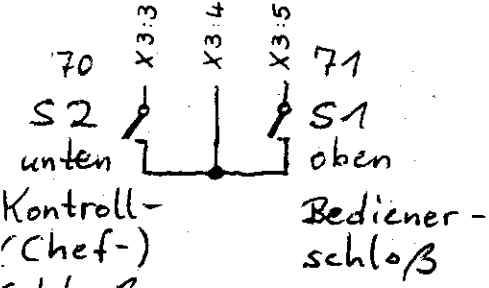 X3:3 X3:4 X3:5
70 71
S2 S1
unten oben
Kontroll- Bediener-
(Chef-) schloß